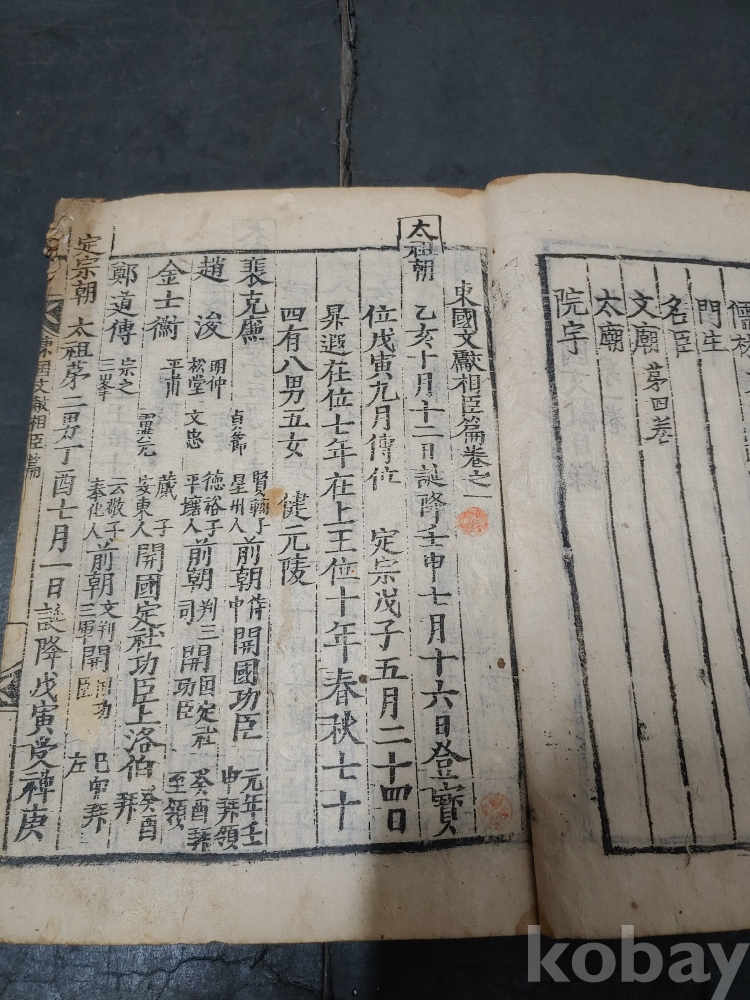 門生
名臣
文廟 第四卷
太廟
院宇
東國文獻相臣篇卷之一
太祖朝 乙亥十月十一日誕降壬申七月十六日登寶
位戊寅九月傳位 定宗戊子五月二十四日
昇遐在位七年在上王位十年春秋七十
四有八男五女 健元陵
裴克廉 貞節 星州人 前朝侍中 開國功臣 元年壬申拜領
趙浚 明仲 松堂 文忠 德裕子 平壤人 前朝判三司 開國定社功臣 癸酉拜 至領
金士衡 平甫 蕆子 安東人 開國定社功臣上洛伯 癸酉拜
鄭道傳 宗之 三峯 云敬子 奉化人 前朝 三軍 開國功臣 拜左
定宗朝 太祖第二男丁酉七月一日誕降戊寅受禪庚
東國文獻相臣篇
kobay